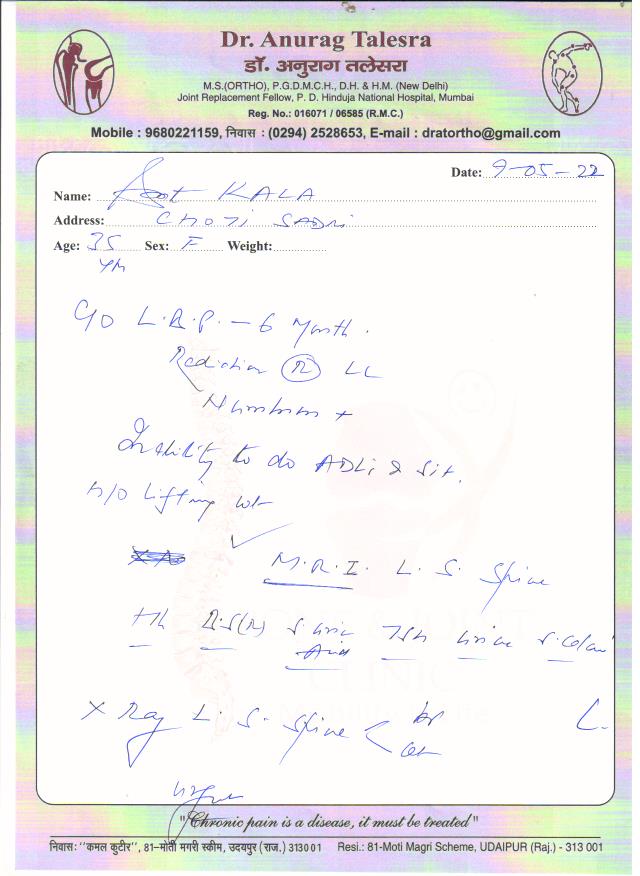 Dr. Anurag Talesra
डॉ. अनुराग तलेसरा
M.S.(ORTHO), P.G.D.M.C.H., D.H. & H.M. (New Delhi)
Joint Replacement Fellow, P. D. Hinduja National Hospital, Mumbai
Reg. No.: 016071 / 06585 (R.M.C.)
Mobile : 9680221159, निवास : (0294) 2528653, E-mail : dratortho@gmail.com
Date: 9-05-22
Name: KALA
Address: CHOTI SADRI
Age: 35 Sex: F Weight:
C/O L.B.P. - 6 Month.
Radiation (R) LL
Numbness +
Inability to do ADLs & Sit.
H/O Lifting wt
M.R.I. L. S. Spine
Hb B.S(R) S. Uric TSH Urine
Acid
X Ray L. S. Spine
"Chronic pain is a disease, it must be treated"
निवास: "कमल कुटीर", 81-मोती मगरी स्कीम, उदयपुर (राज.) 313001 Resi.: 81-Moti Magri Scheme, UDAIPUR (Raj.) - 313 001